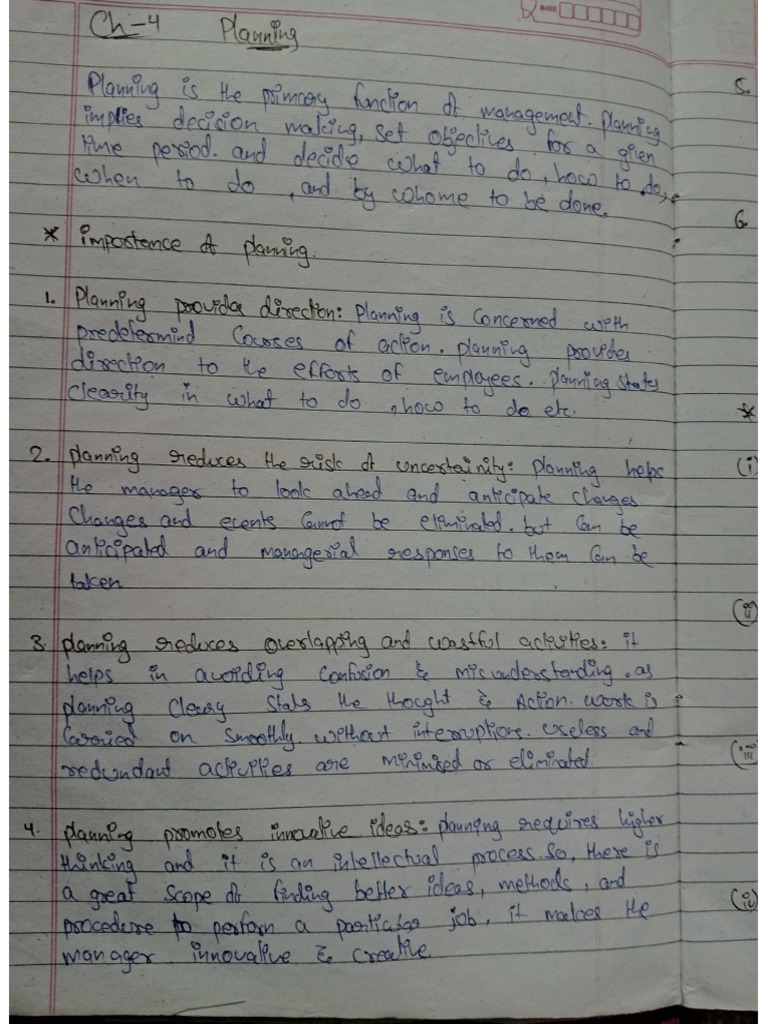 Ch-4 Planning
Planning is the primary function of management. Planning
implies decision making, set objectives for a given
time period. and decide what to do, how to do,
when to do, and by whome to be done.
* importence of planning.
1. Planning provides direction: planning is concerned with
predetermind courses of action. planning provides
direction to the efforts of employees. planning states
clearity in what to do, how to do etc.
2. planning reduces the risk of uncertainity: planning helps
the manager to look ahead and anticipate changes
changes and events cannot be eliminated. but can be
anticipated and managerial responses to them can be
taken
3. planning reduces overlapping and wastful activities: it
helps in avoiding confusion & misunderstanding. as
planning cleary stats the thought & Action. work is
carried on smoothly without interruptions. useless and
redundant activities are minimized or eliminated.
4. planning promotes innovative ideas: planning requires higher
thinking and it is an intellectual process. so, there is
a great scope of finding better ideas, methods, and
procedure to perform a particular job, it makes the
manager innovative & creative.
5.
6.
*
(i)
(ii)
(iii)